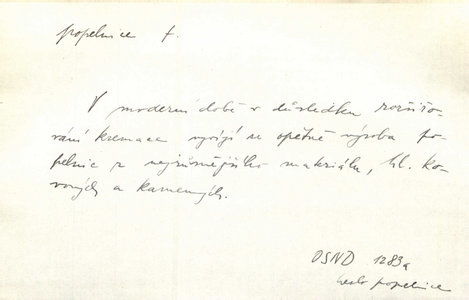 popelnice f.
V moderní době v důsledku rozšiřo-
vání kremace vyvíjí se opětně výroba po-
pelnic z nejrůznějšího makriálu, hl. ko-
vových a kamenných.
OSND 1283a
heslo popelnice